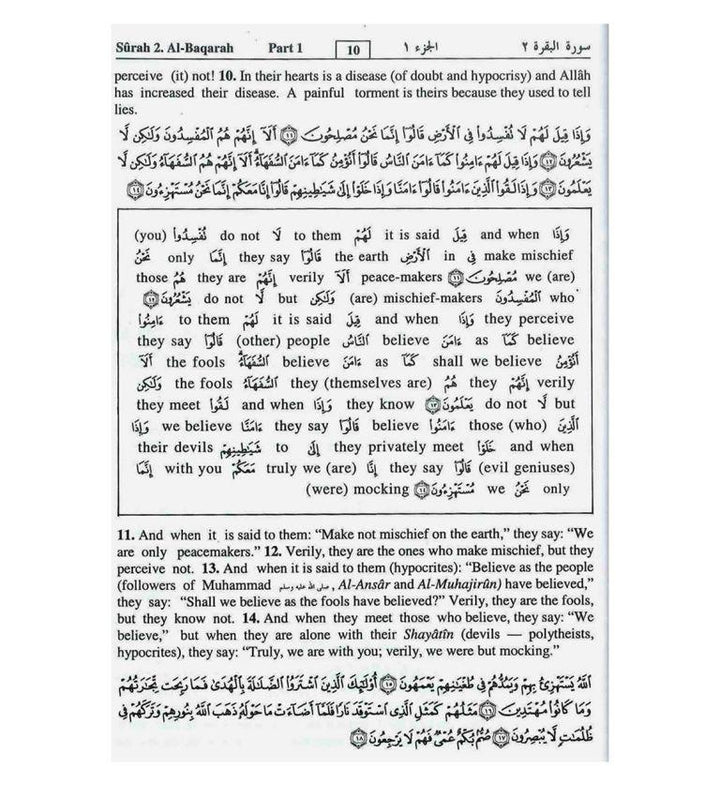 Sûrah 2. Al-Baqarah Part 1 10 الجزء ١ سورة البقرة ٢
perceive (it) not! 10. In their hearts is a disease (of doubt and hypocrisy) and Allâh
has increased their disease. A painful torment is theirs because they used to tell
lies.
وَإِذَا قِيلَ لَهُمْ لَا تُفْسِدُوا۟ فِى ٱلْأَرْضِ قَالُوٓا۟ إِنَّمَا نَحْنُ مُصْلِحُونَ ١١ أَلَآ إِنَّهُمْ هُمُ ٱلْمُفْسِدُونَ وَلَـٰكِن لَّا
يَشْعُرُونَ ١٢ وَإِذَا قِيلَ لَهُمْ ءَامِنُوا۟ كَمَآ ءَامَنَ ٱلنَّاسُ قَالُوٓا۟ أَنُؤْمِنُ كَمَآ ءَامَنَ ٱلسُّفَهَآءُ أَلَآ إِنَّهُمْ هُمُ ٱلسُّفَهَآءُ وَلَـٰكِن لَّا
يَعْلَمُونَ ١٣ وَإِذَا لَقُوا۟ ٱلَّذِينَ ءَامَنُوا۟ قَالُوٓا۟ ءَامَنَّا وَإِذَا خَلَوْا۟ إِلَىٰ شَيَـٰطِينِهِمْ قَالُوٓا۟ إِنَّا مَعَكُمْ إِنَّمَا نَحْنُ مُسْتَهْزِءُونَ ١٤
(you) تُفْسِدُوا۟ do not لَا to them لَهُمْ it is said قِيلَ and when وَإِذَا
نَحْنُ only إِنَّمَا they say قَالُوٓا۟ the earth ٱلْأَرْضِ in فِى make mischief
those هُمُ they are إِنَّهُمْ verily أَلَآ peace-makers مُصْلِحُونَ ١١ we (are)
يَشْعُرُونَ ١٢ do not لَّا but وَلَـٰكِن (are) mischief-makers ٱلْمُفْسِدُونَ who
ءَامِنُوا۟ to them لَهُمْ it is said قِيلَ and when وَإِذَا they perceive
they say قَالُوٓا۟ (other) people ٱلنَّاسُ believe ءَامَنَ as كَمَآ believe
أَلَآ the fools ٱلسُّفَهَآءُ believe ءَامَنَ as كَمَآ shall we believe أَنُؤْمِنُ
وَلَـٰكِن the fools ٱلسُّفَهَآءُ they (themselves are) هُمُ they إِنَّهُمْ verily
they meet لَقُوا۟ and when وَإِذَا they know يَعْلَمُونَ ١٣ do not لَّا but
وَإِذَا we believe ءَامَنَّا they say قَالُوٓا۟ believe ءَامَنُوا۟ those (who) ٱلَّذِينَ
their devils شَيَـٰطِينِهِمْ to إِلَىٰ they privately meet خَلَوْا۟ and when
إِنَّمَا with you مَعَكُمْ truly we (are) إِنَّا they say قَالُوٓا۟ (evil geniuses)
(were) mocking مُسْتَهْزِءُونَ ١٤ we نَحْنُ only
11. And when it is said to them: “Make not mischief on the earth,” they say: “We
are only peacemakers.” 12. Verily, they are the ones who make mischief, but they
perceive not. 13. And when it is said to them (hypocrites): “Believe as the people
(followers of Muhammad صلى الله عليه وسلم, Al-Ansâr and Al-Muhajirûn) have believed,”
they say: “Shall we believe as the fools have believed?” Verily, they are the fools,
but they know not. 14. And when they meet those who believe, they say: “We
believe,” but when they are alone with their Shayâtîn (devils — polytheists,
hypocrites), they say: “Truly, we are with you; verily, we were but mocking.”
ٱللَّهُ يَسْتَهْزِئُ بِهِمْ وَيَمُدُّهُمْ فِى طُغْيَـٰنِهِمْ يَعْمَهُونَ ١٥ أُو۟لَـٰٓئِكَ ٱلَّذِينَ ٱشْتَرَوُا۟ ٱلضَّلَـٰلَةَ بِٱلْهُدَىٰ فَمَا رَبِحَت تِّجَـٰرَتُهُمْ
وَمَا كَانُوا۟ مُهْتَدِينَ ١٦ مَثَلُهُمْ كَمَثَلِ ٱلَّذِى ٱسْتَوْقَدَ نَارًا فَلَمَّآ أَضَآءَتْ مَا حَوْلَهُۥ ذَهَبَ ٱللَّهُ بِنُورِهِمْ وَتَرَكَهُمْ فِى
ظُلُمَـٰتٍ لَّا يُبْصِرُونَ ١٧ صُمٌّۢ بُكْمٌ عُمْىٌ فَهُمْ لَا يَرْجِعُونَ ١٨